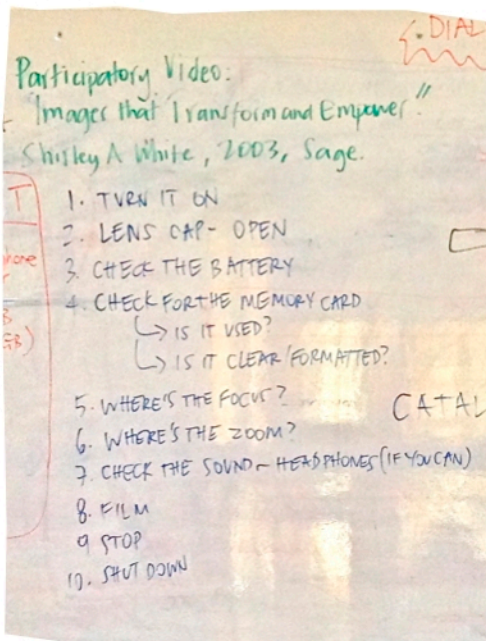 DIAL
Participatory Video:
"Images that Transform and Empower"
Shirley A White, 2003, Sage.
T
1. TURN IT ON
2. LENS CAP - OPEN
phone
3. CHECK THE BATTERY
4. CHECK FOR THE MEMORY CARD
↳ IS IT USED?
GB)
↳ IS IT CLEAR/FORMATTED?
5. WHERE'S THE FOCUS?
CATAL
6. WHERE'S THE ZOOM?
7. CHECK THE SOUND - HEADPHONES (IF YOU CAN)
8. FILM
9 STOP
10. SHUT DOWN